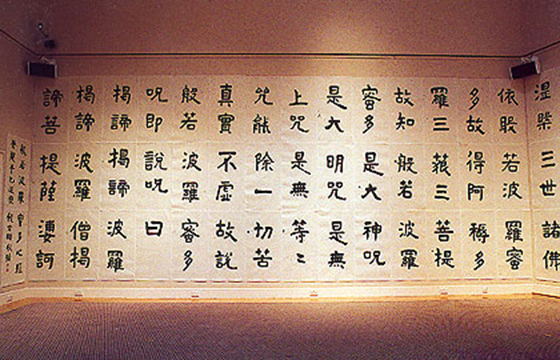 涅槃三世諸佛
依般若波羅蜜
多故得阿耨多
羅三藐三菩提
故知般若波羅
蜜多是大神咒
是大明咒是無
上咒是無等〻
咒能除一切苦
真實不虛故說
般若波羅蜜多
咒即說咒曰
揭諦揭諦波羅
揭諦波羅僧揭
諦菩提薩婆訶
般若波羅蜜多心經